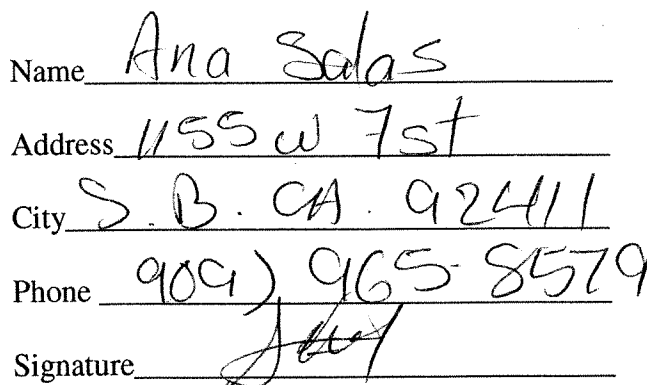 Name Ana Salas
Address 1155 w 7st
City S.B. CA. 92411
Phone 909) 965-8579
Signature